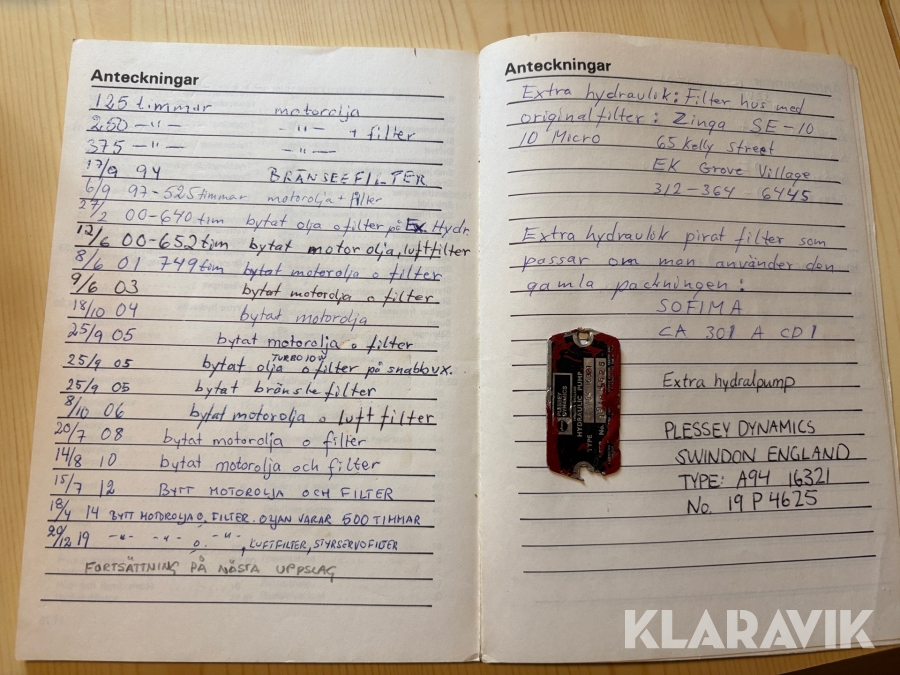 Anteckningar
125 timmar motorolja
250 -"- -"- + filter
375 -"- -"-
17/9 94 BRÄNSEEFILTER
6/9 97-525timmar motorolja + filter
27/2 00-640 tim bytat olja o filter på Ex. Hydr.
12/6 00-652 tim bytat motorolja, luftfilter
8/6 01 749 tim bytat motorolja o filter
9/6 03 bytat motorolja o filter
18/10 04 bytat motorolja
25/9 05 bytat motorolja o filter
25/9 05 bytat olja TURBO 10W o filter på snabbvx.
25/9 05 bytat bränslefilter
8/10 06 bytat motorolja o luftfilter
20/7 08 bytat motorolja o filter
14/8 10 bytat motorolja och filter
15/7 12 BYTT MOTOROLJA OCH FILTER
18/4 14 BYTT MOTOROLJA O. FILTER. OLJAN VARAR 500 TIMMAR
20/12 19 -"- -"- O. -"-, LUFTFILTER, STYRSERVOFILTER
FORTSÄTTNING PÅ NÄSTA UPPSLAG
Anteckningar
Extra hydraulik: Filter hus med
originalfilter: Zinga SE-10
10 Micro 65 Kelly Street
EK Grove Village
312-364-6445
Extra hydraulik pirat filter som
passar om man använder den
gamla packningen:
SOFIMA
CA 301 A CD1
PLESSEY
DYNAMICS
HYDRAULIC PUMP
TYPE
No.
Extra hydralpump
PLESSEY DYNAMICS
SWINDON ENGLAND
TYPE: A94 16321
No. 19 P 4625
KLARAVIK